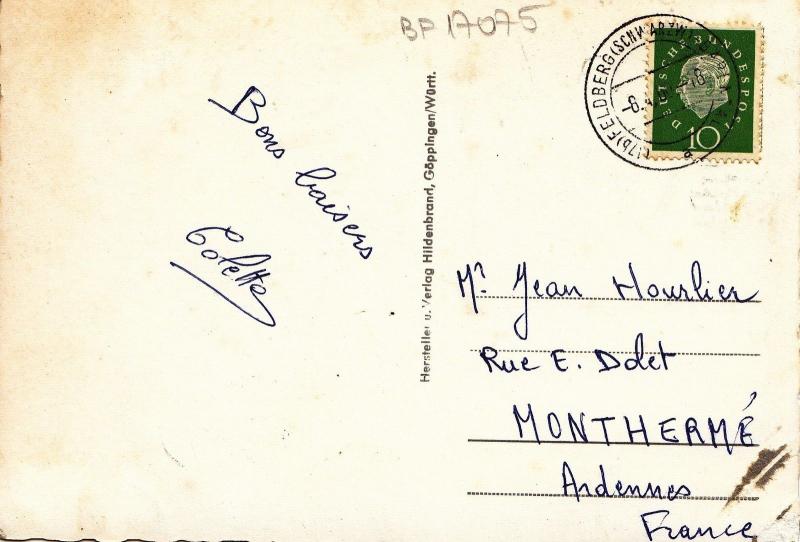 BP 17075
Bons baisers
Colette
Hersteller u. Verlag Hildenbrand, Göppingen/Württ.
FELDBERG (SCHWARZW)
DEUTSCHE BUNDESPOST
10
Mr. Jean Hourlier
Rue E. Dolet
MONTHERMÉ
Ardennes
France